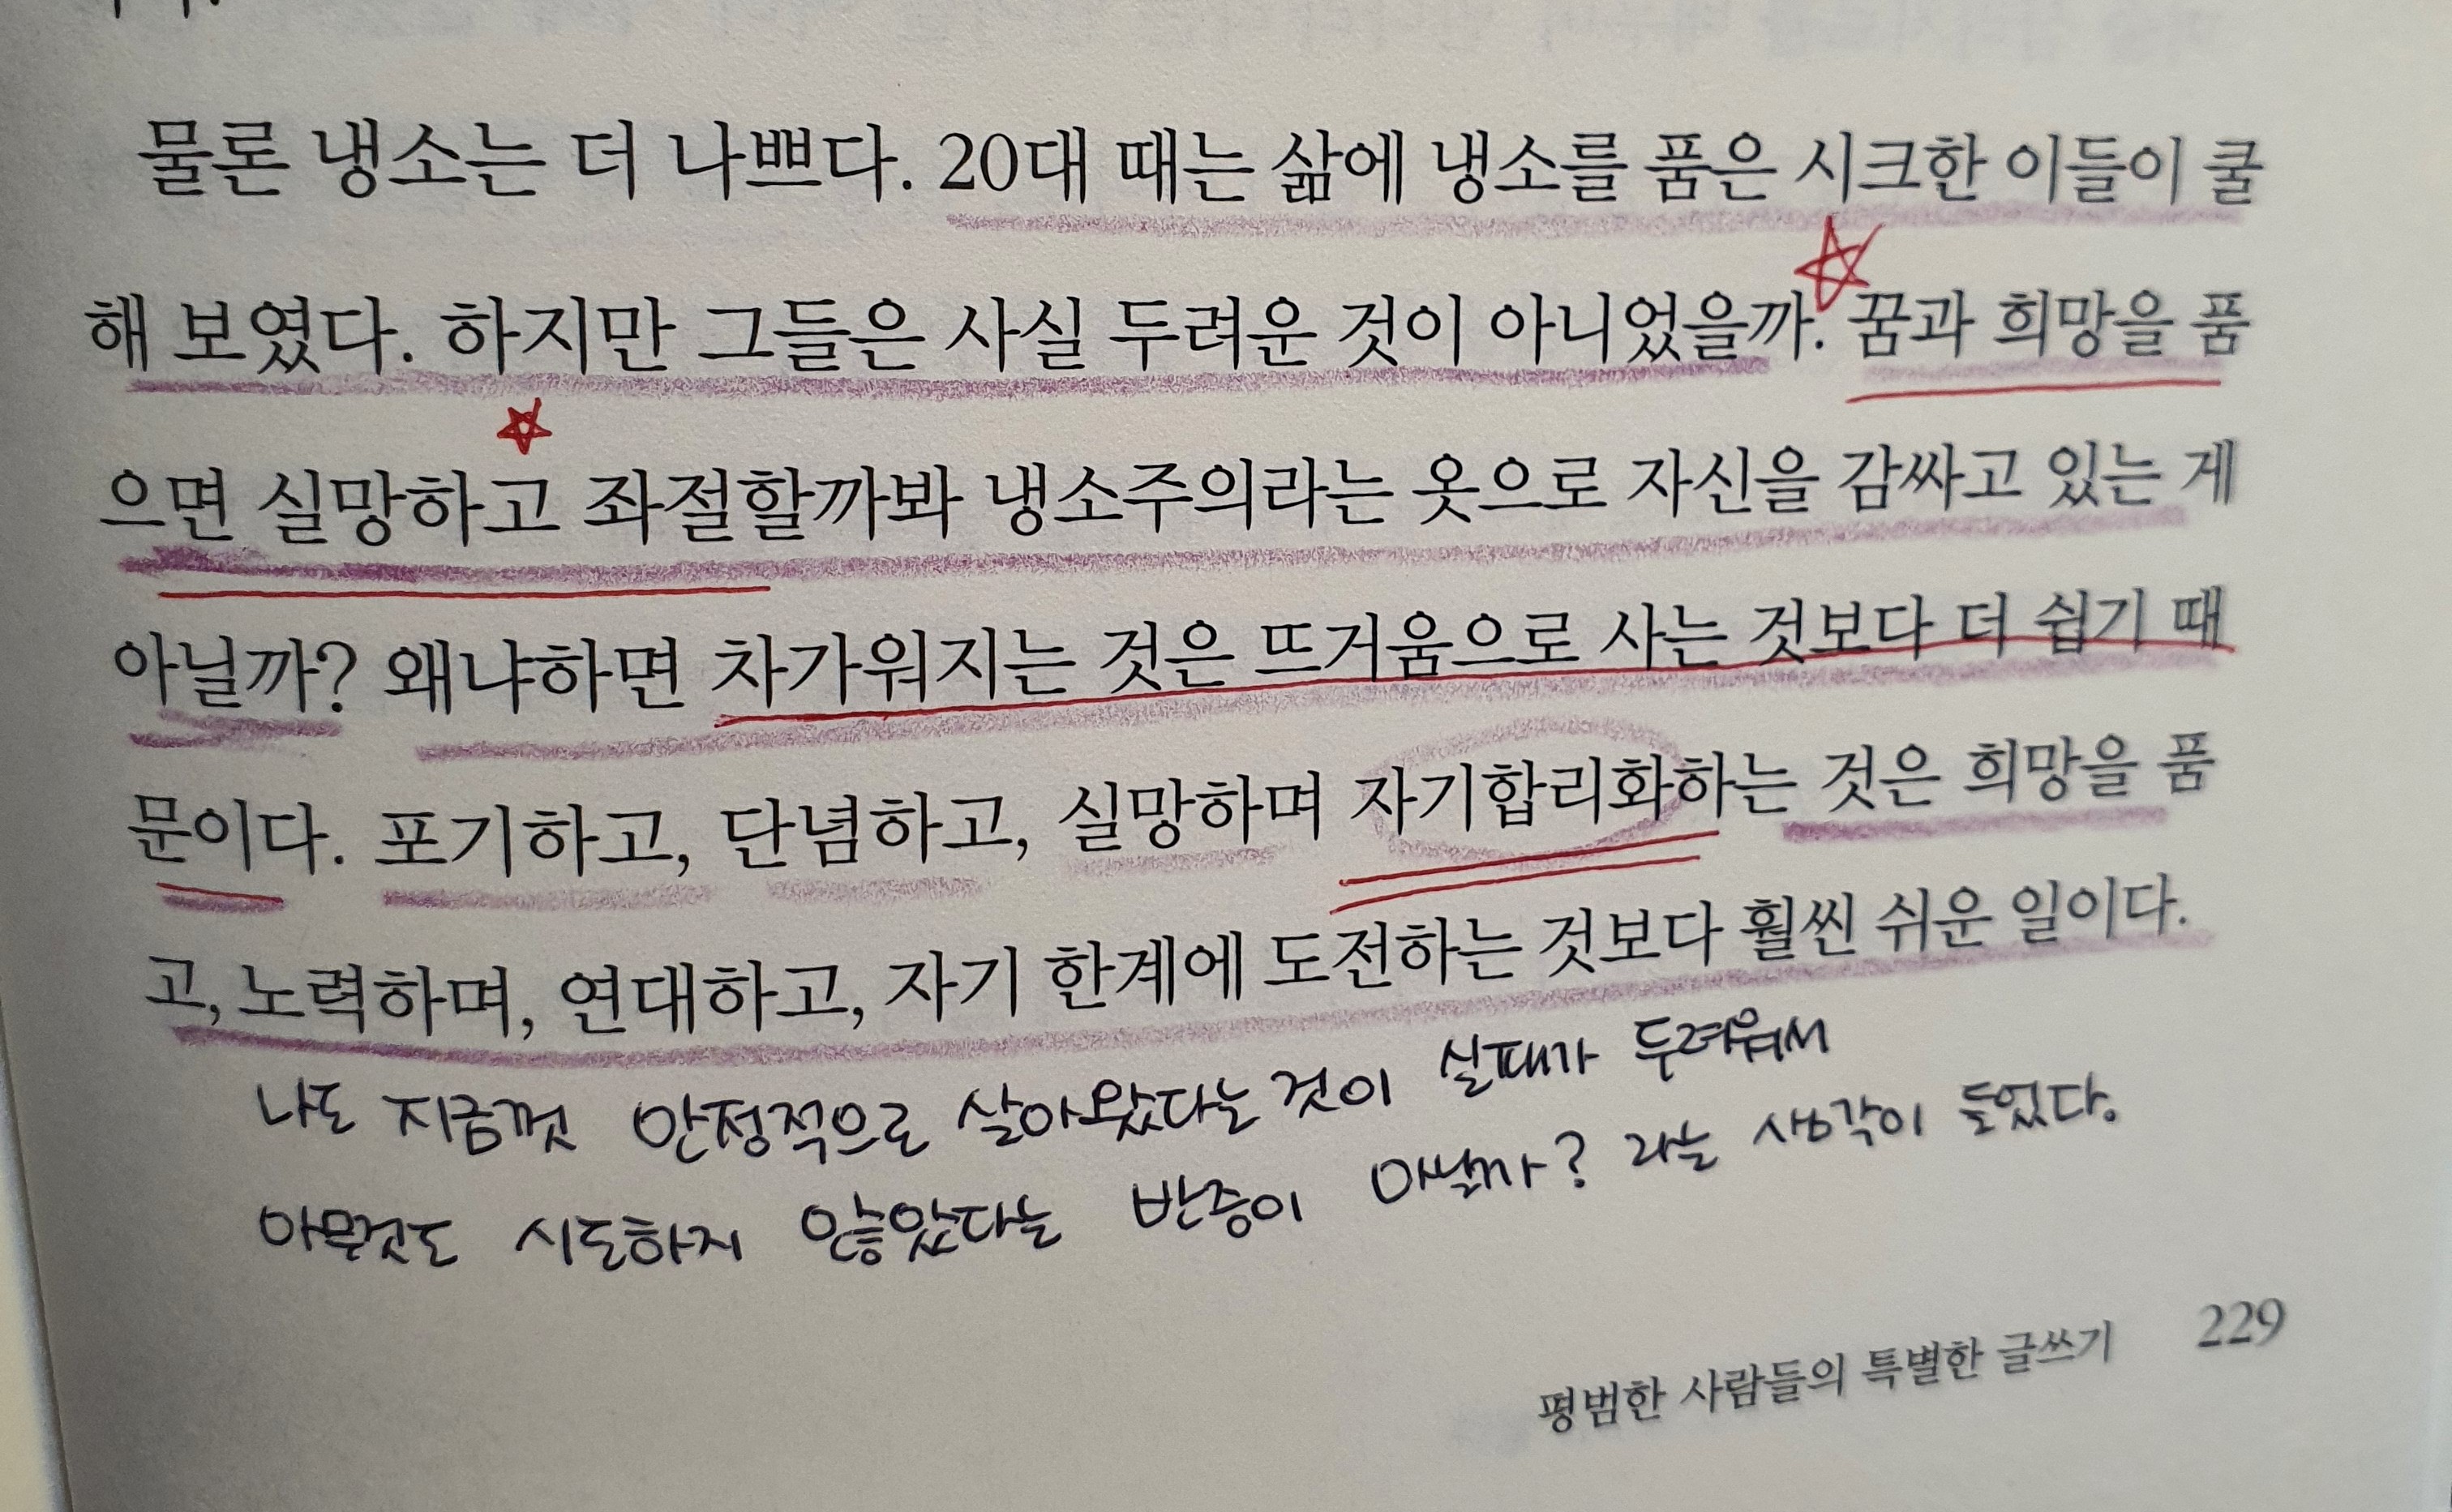 물론 냉소는 더 나쁘다. 20대 때는 삶에 냉소를 품은 시크한 이들이 쿨
해 보였다. 하지만 그들은 사실 두려운 것이 아니었을까. 꿈과 희망을 품
으면 실망하고 좌절할까봐 냉소주의라는 옷으로 자신을 감싸고 있는 게
아닐까? 왜냐하면 차가워지는 것은 뜨거움으로 사는 것보다 더 쉽기 때
문이다. 포기하고, 단념하고, 실망하며 자기합리화하는 것은 희망을 품
고, 노력하며, 연대하고, 자기 한계에 도전하는 것보다 훨씬 쉬운 일이다.
나도 지금껏 안정적으로 살아왔다는 것이 실패가 두려워서
아무것도 시도하지 않았다는 반증이 아닐까? 라는 생각이 들었다.
평범한 사람들의 특별한 글쓰기 229